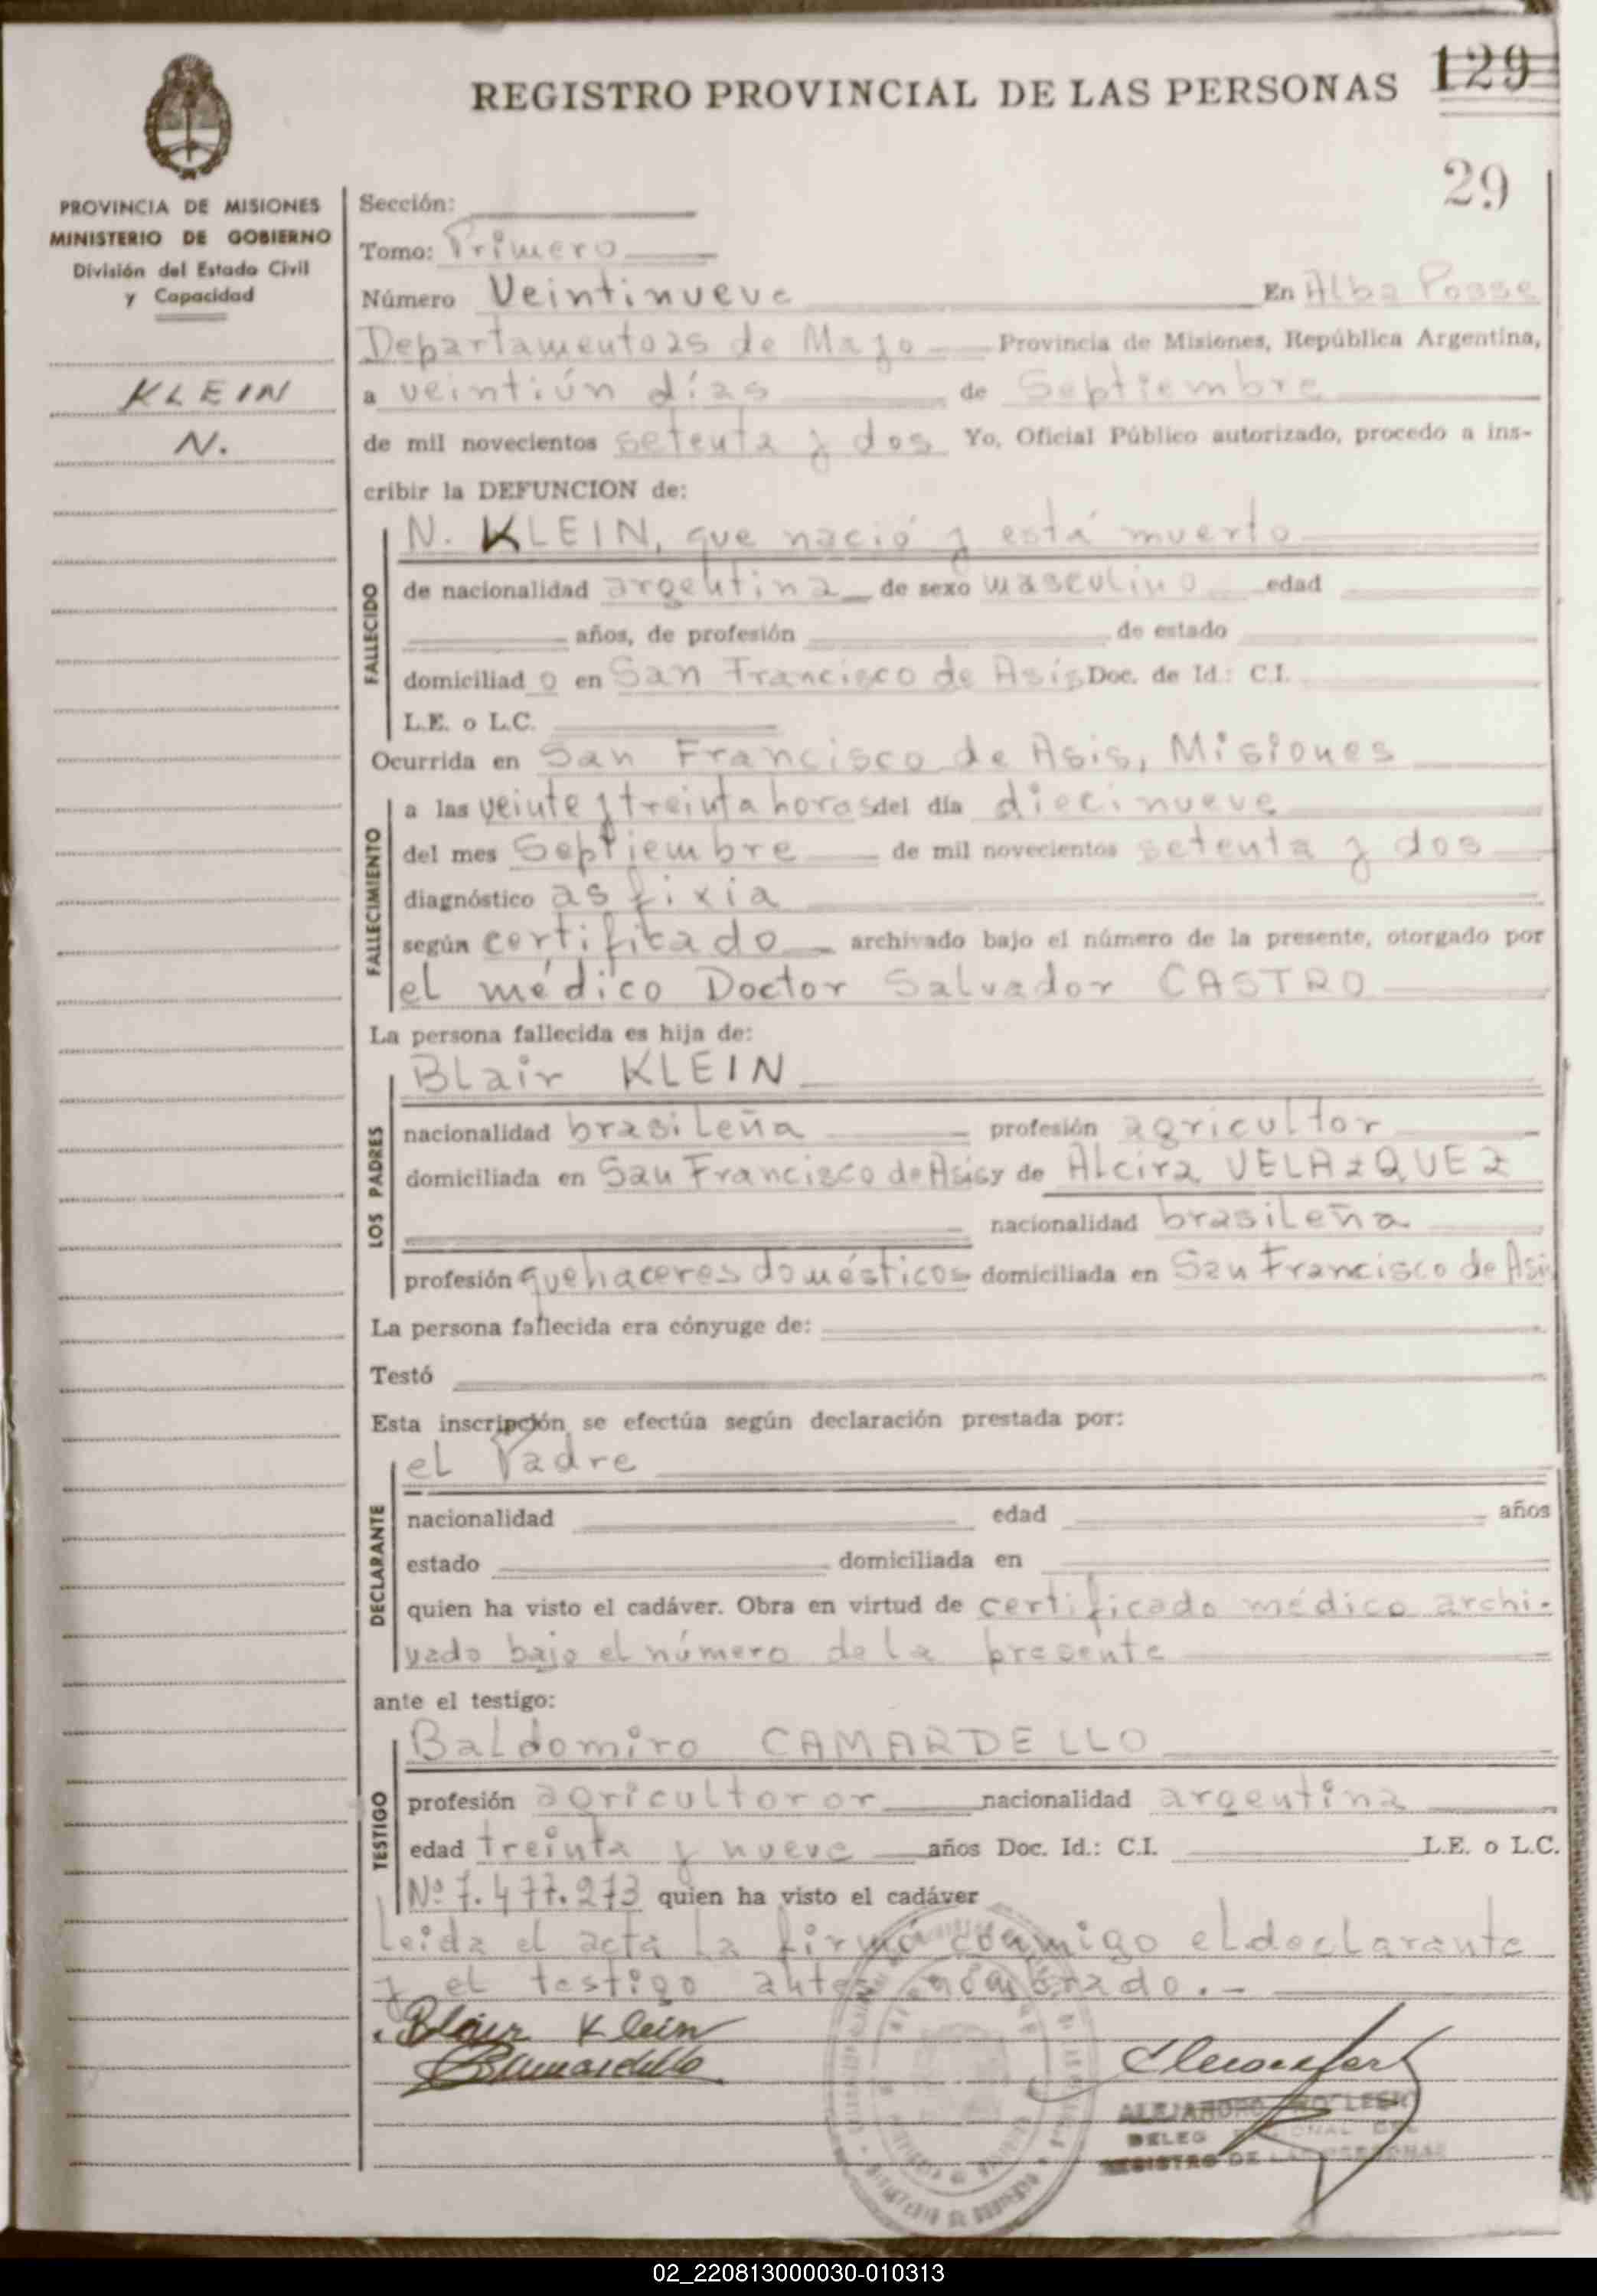 REGISTRO PROVINCIAL DE LAS PERSONAS
129
29
PROVINCIA DE MISIONES
MINISTERIO DE GOBIERNO
División del Estado Civil
y Capacidad
KLEIN
N.
Sección:
Tomo: Primero
Número Veintinueve En Alba Posse
Departamento 25 de Mayo Provincia de Misiones, República Argentina,
a veintiún días de Septiembre
de mil novecientos setenta y dos Yo, Oficial Público autorizado, procedo a ins-
cribir la DEFUNCION de:
N. KLEIN, que nació y está muerto
FALLECIDO
de nacionalidad argentina de sexo masculino edad
años, de profesión de estado
domiciliado en San Francisco de Asís Doc. de Id.: C.I.
L.E. o L.C.
Ocurrida en San Francisco de Asis, Misiones
FALLECIMIENTO
a las veinte y treinta horas del día diecinueve
del mes Septiembre de mil novecientos setenta y dos
diagnóstico asfixia
según certificado archivado bajo el número de la presente, otorgado por
el médico Doctor Salvador CASTRO
La persona fallecida es hija de:
Blair KLEIN
LOS PADRES
nacionalidad brasileña profesión agricultor
domiciliada en San Francisco de Asis y de Alcira VELAZQUEZ
nacionalidad brasileña
profesión quehaceres domésticos domiciliada en San Francisco de Asis
La persona fallecida era cónyuge de:
Testó
Esta inscripción se efectúa según declaración prestada por:
el Padre
DECLARANTE
nacionalidad edad años
estado domiciliada en
quien ha visto el cadáver. Obra en virtud de certificado médico archi-
vado bajo el número de la presente
ante el testigo:
Baldomiro CAMARDELLO
TESTIGO
profesión agricultoror nacionalidad argentina
edad treinta y nueve años Doc. Id.: C.I. L.E. o L.C.
Nº 7.477.273 quien ha visto el cadáver
Leida el acta la firma conmigo el declarante
y el testigo antes nombrado.-
Blair Klein
ALEJANDRO
REGISTRO DE LAS PERSONAS
02_220813000030-010313